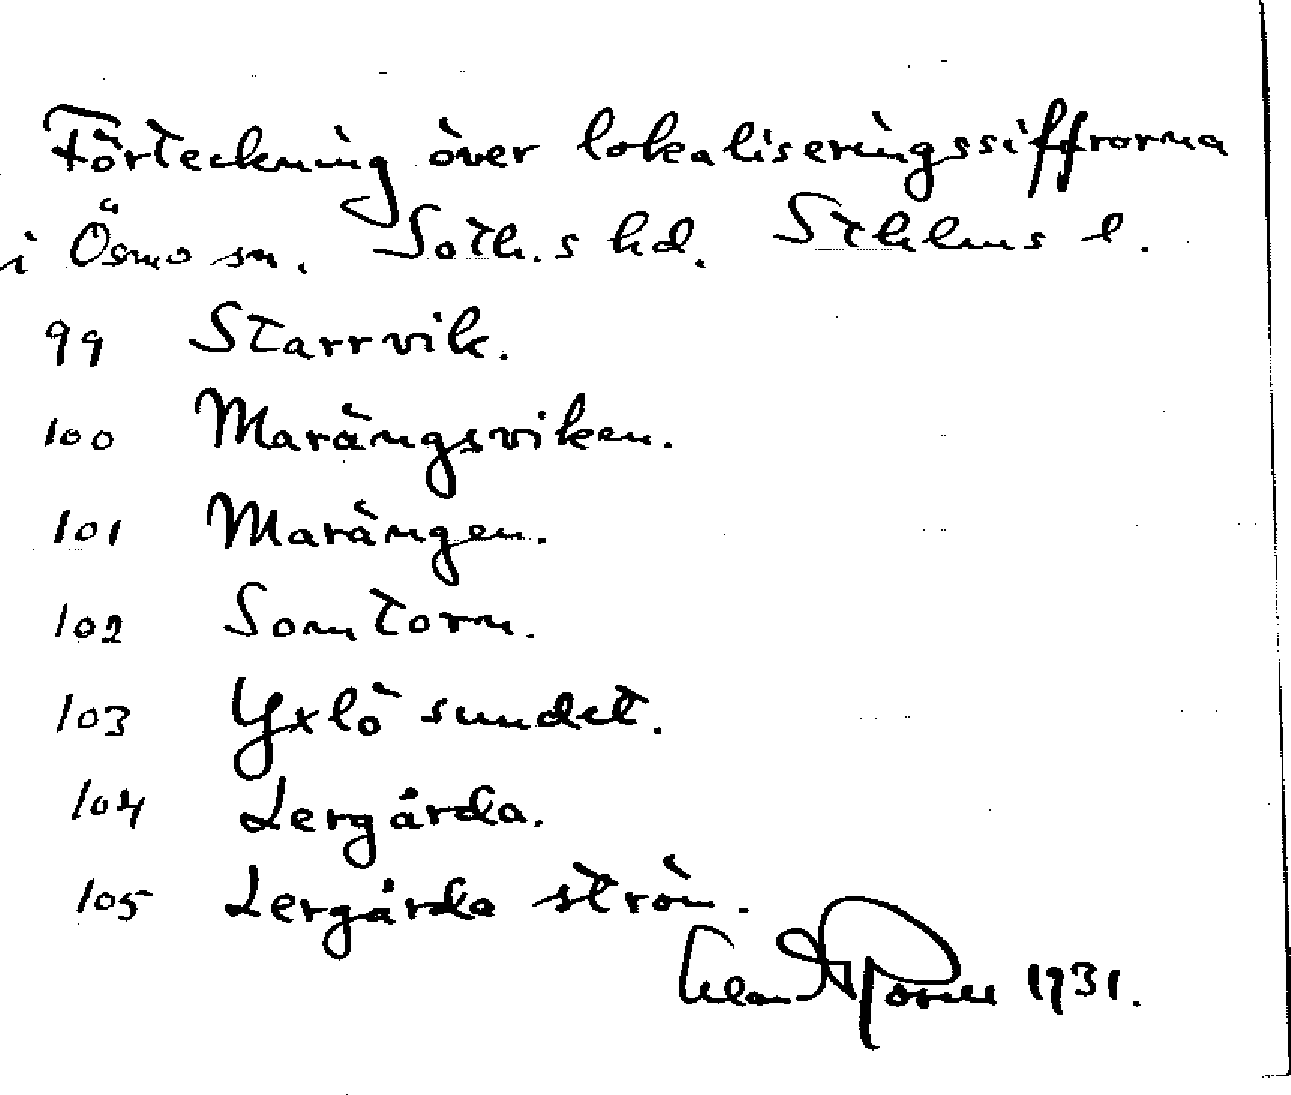 Förteckning över lokaliseringssiffrorna
i Ösmo sn. Soth.s hd. Sthlms l.
99 Starrvik.
100 Marängsviken.
101 Marängen.
102 Somtorn.
103 Yxlö sundet.
104 Lergårda.
105 Lergårda ström.
1931.